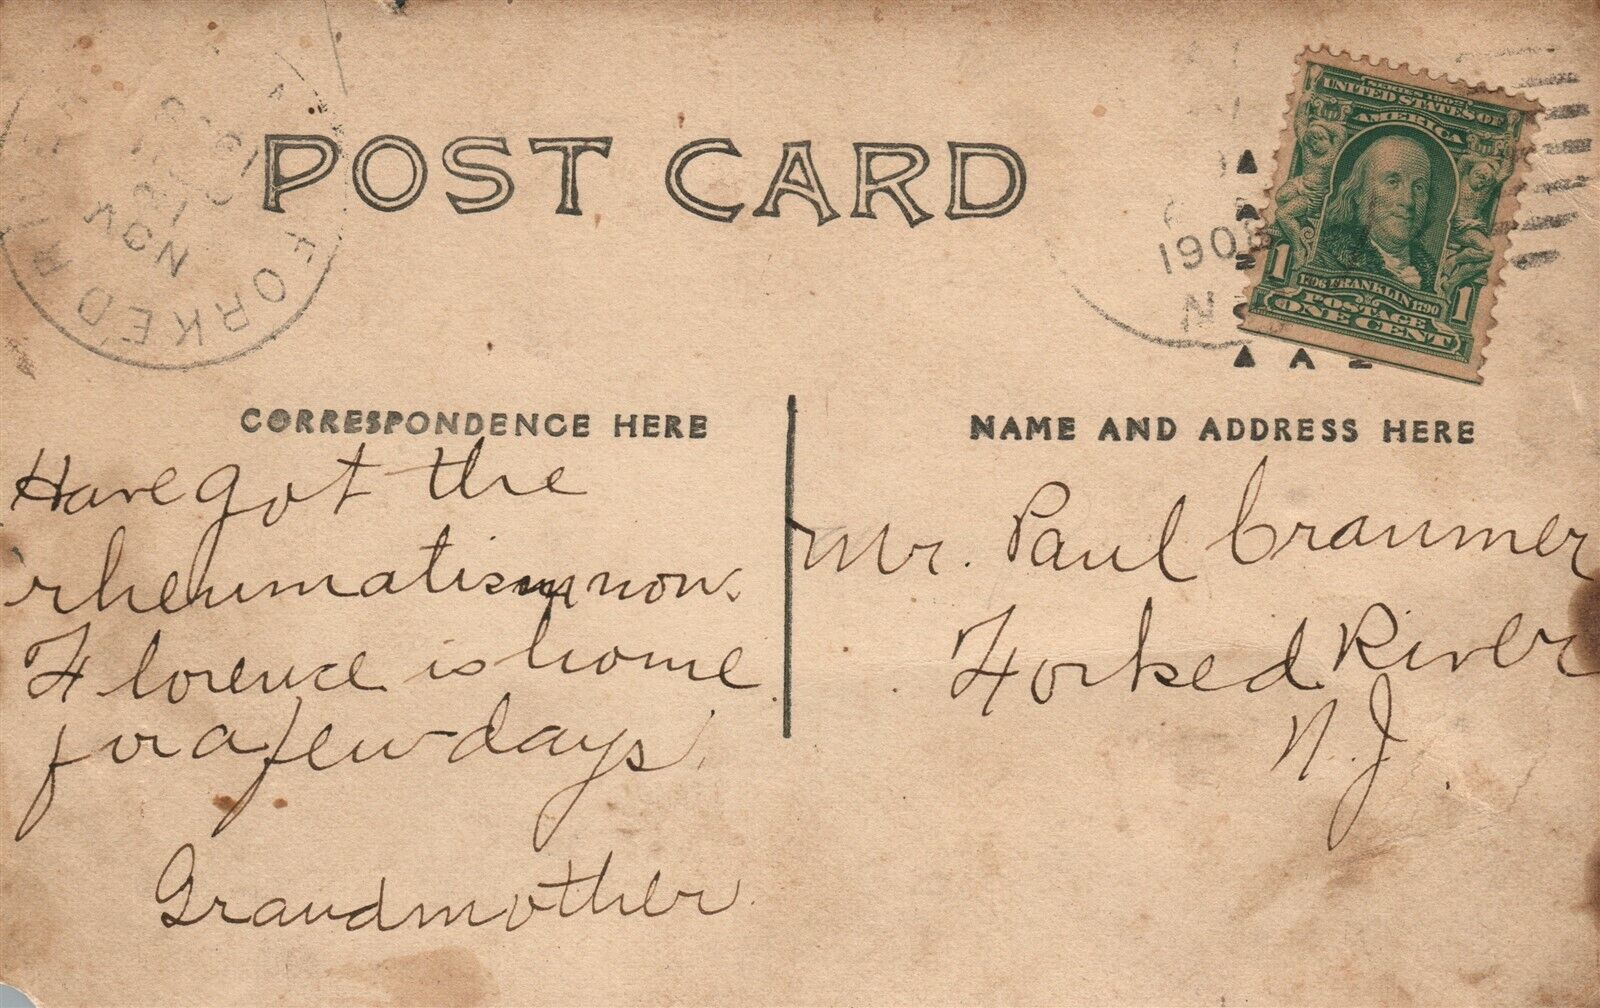 POST CARD
SERIES 1902
UNITED STATES OF
AMERICA
1706 FRANKLIN 1790
1 1
POSTAGE
ONE CENT
FORKED RIVER
NOV
1908
N
CORRESPONDENCE HERE
Have got the
rheumatism now.
Florence is home
for a few days.
Grandmother.
NAME AND ADDRESS HERE
Mr. Paul Craumer
Forked River
N. J.